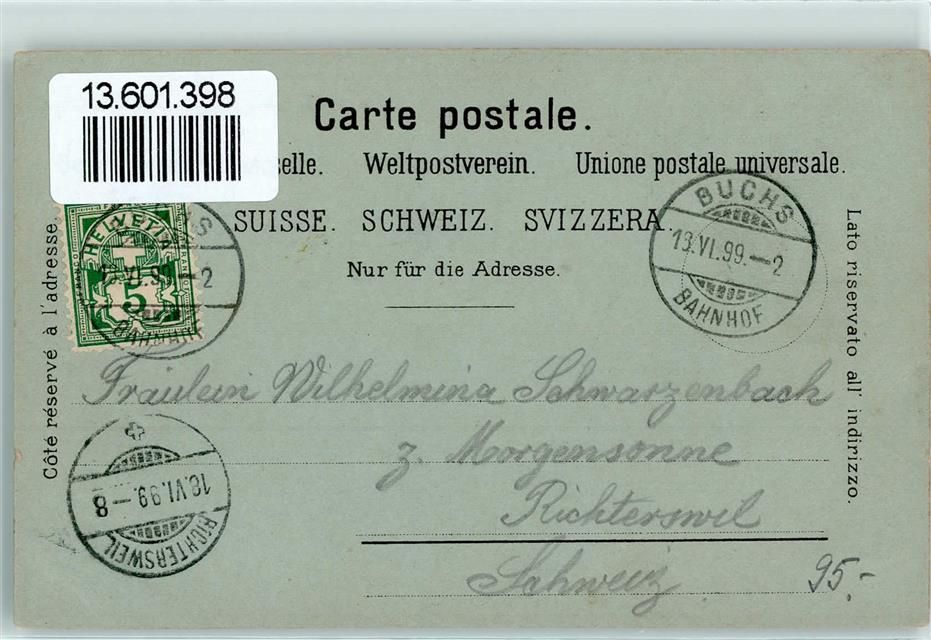 13.601.398
Carte postale.
selle. Weltpostverein. Unione postale universale.
SUISSE. SCHWEIZ. SVIZZERA.
Nur für die Adresse.
Côté réservé à l'adresse.
Lato riservato all' indirizzo.
HELVETIA
FRANCO
5
BUCHS
13.VI.99.–2
BAHNHOF
BUCHS
13.VI.99.–2
BAHNHOF
Fräulein Wilhelmina Schwarzenbach
z. Morgensonne
Richterswil
Schweiz
95.-
18.VI.99.–8
RICHTERSWEIL